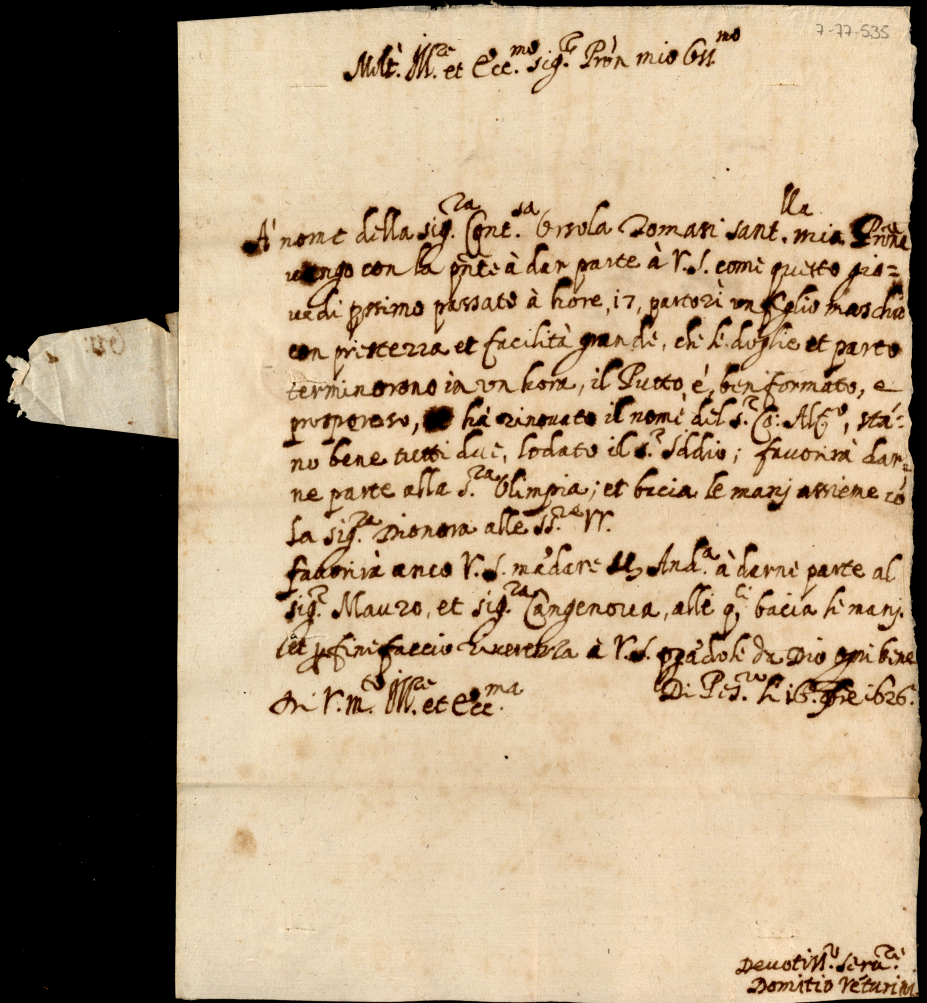 7-77-535
Molt. Ill.re et Ecc.mo sig.re Pròn mio oss.mo
A' nome della sig.ra Cont.sa Orsola Tomasi sant.lla mia Pròna
vengo con la pñte à dar parte à V.S. come questo gio=
vedi pssimo passato à hore, 17, partorì un figlio maschio
con prestezza et facilità grande, che le doglie et parto
terminorono in un hora, il Putto è ben formato, e
prosperoso, hà rinovato il nome del s.r Co: Al.o, stã=
no bene tutti due, lodato il s.r Iddio; favorirà dar=
ne parte alla s.ra Olimpia; et bacia le manj assieme cõ
la sig.ra Dionora alle SS.rie VV.
favorirà anco V.S. mãdare And.a à darne parte al
sig.r Mauro, et sig.ra Cangenova, alli q.li bacia le manj.
et p fine faccio riverenza à V.S. pgãdole da Dio ogni bene
Di V.S. m.to Ill.re et Ecc.ma
Di Pes.ro li 16. 9bre 1626.
Devotiss.o Ser.re
Domitio Vẽturini